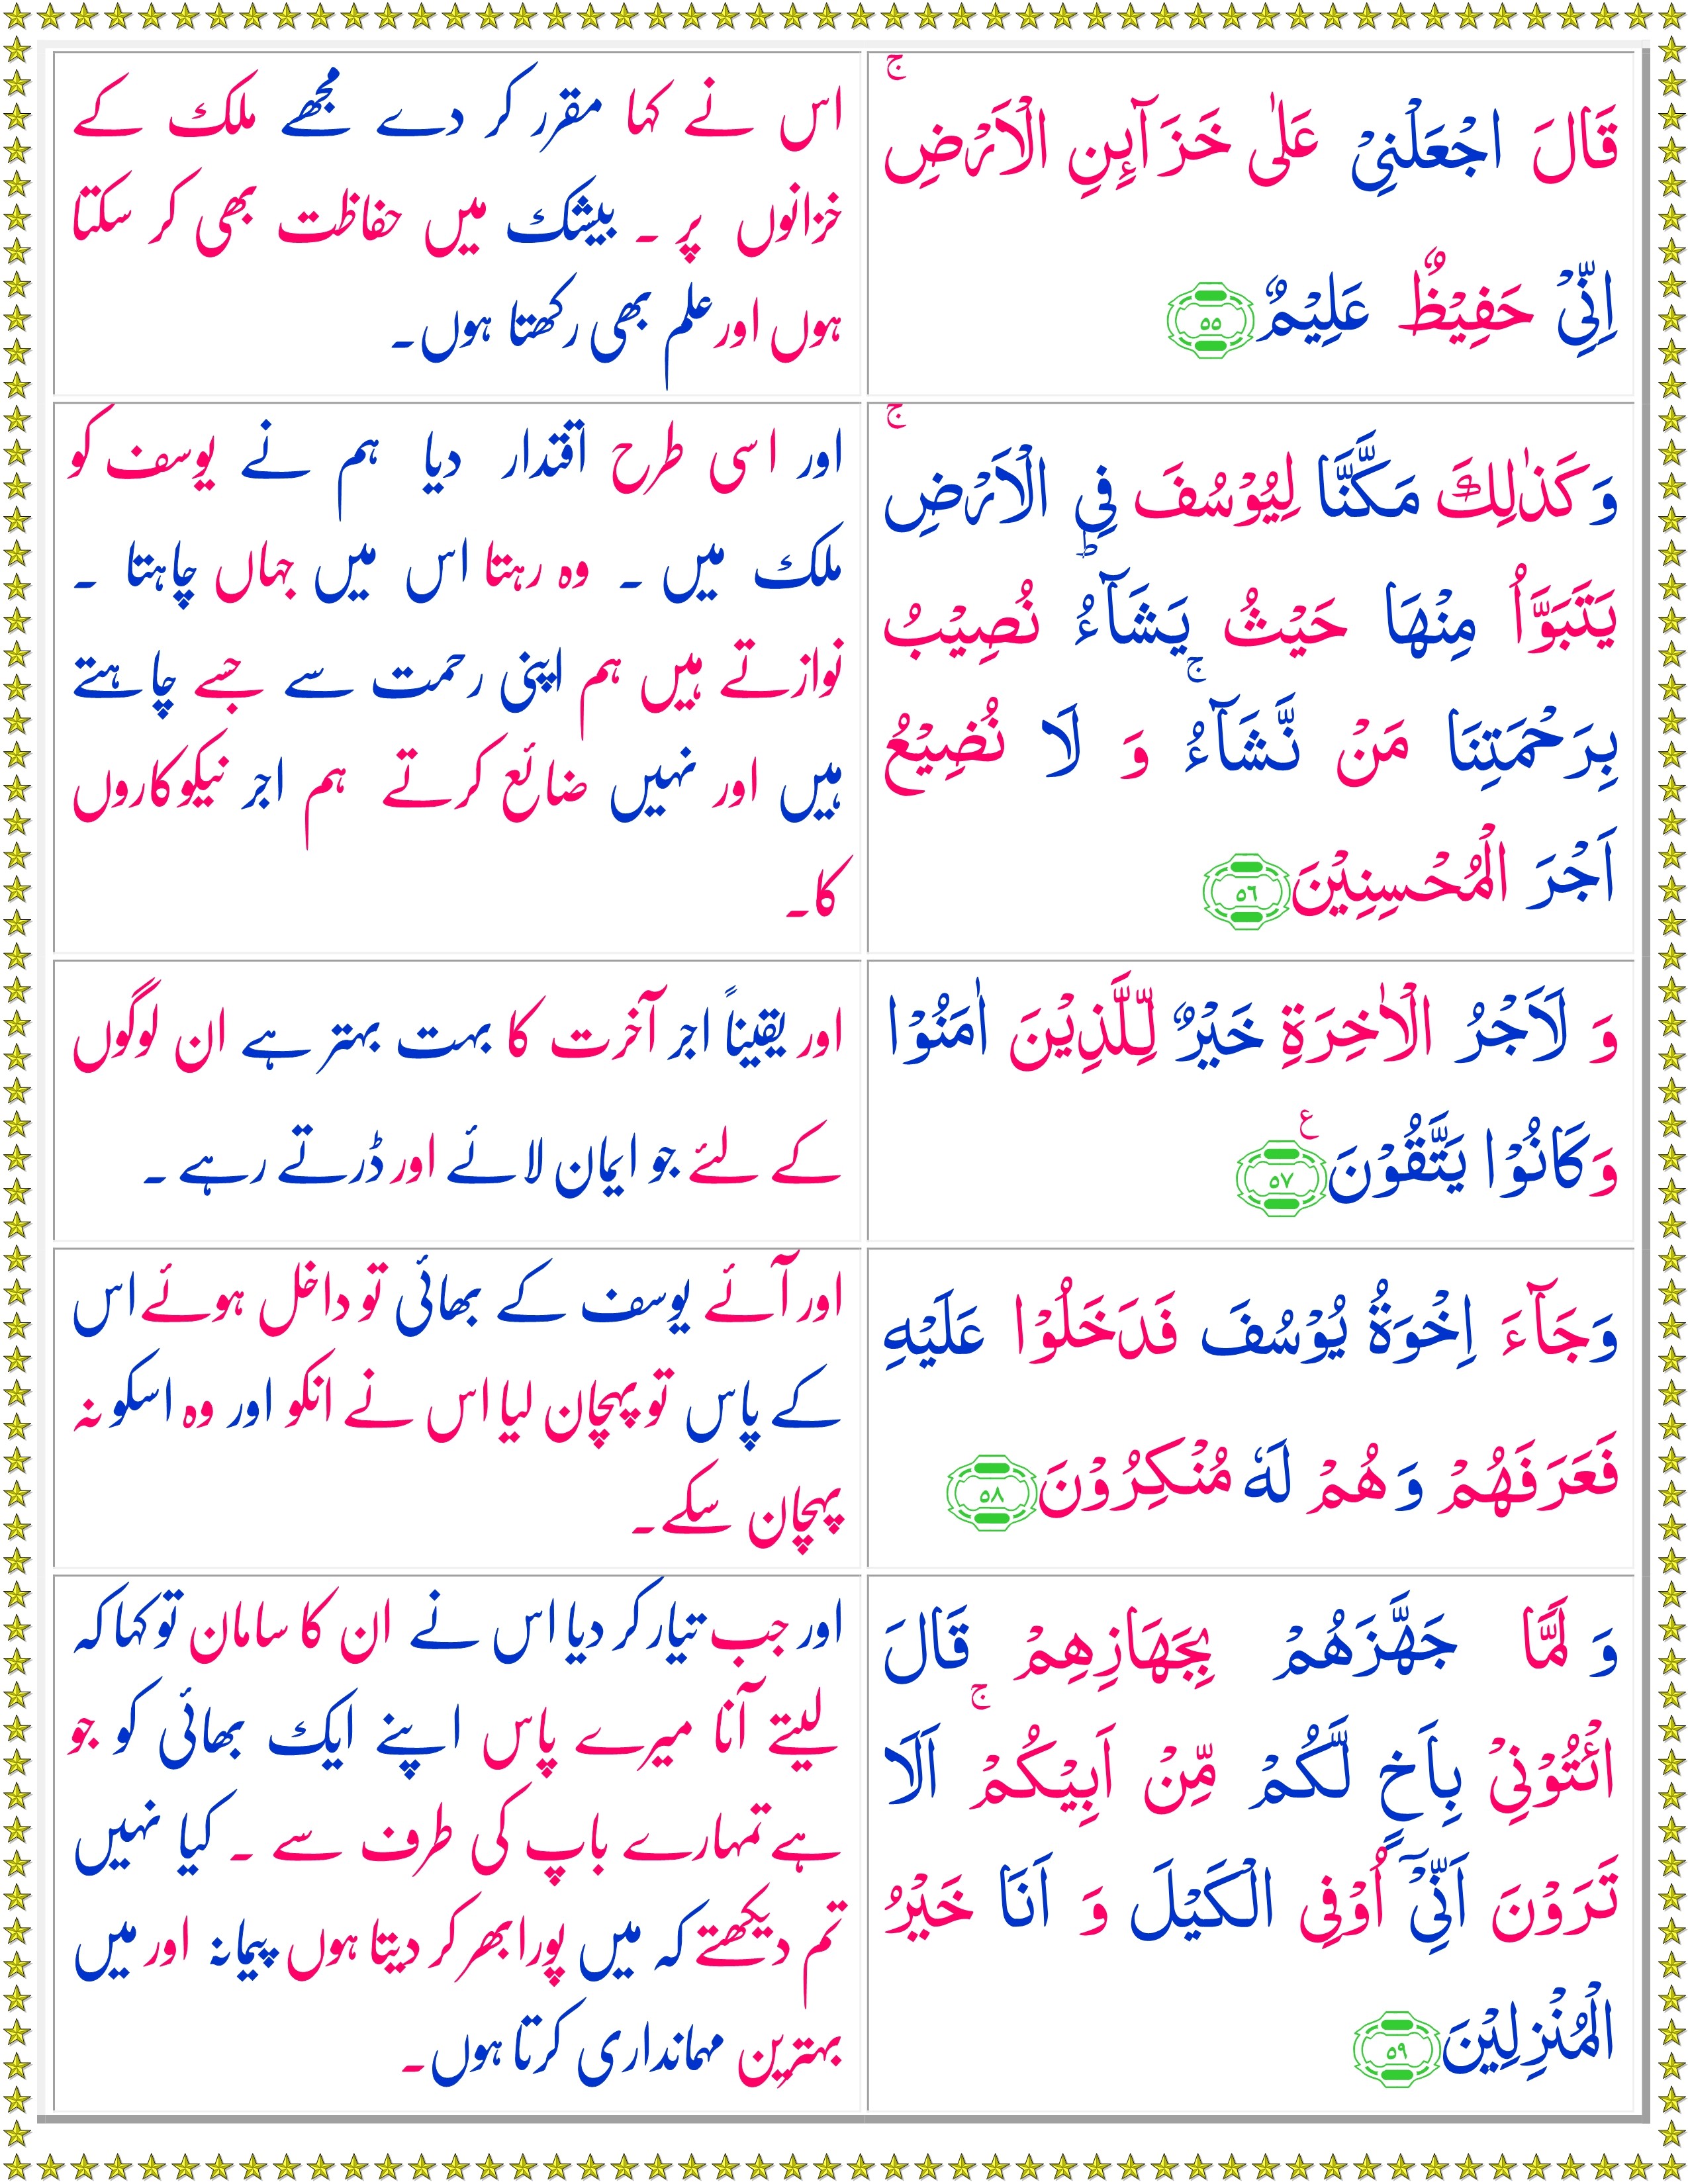 قَالَ اجْعَلْنِيْ عَلٰى خَزَآىِٕنِ الْاَرْضِ ۚ
اِنِّيْ حَفِيْظٌ عَلِيْمٌ ۝٥٥
اس نے کہا مقرر کر دے مجھے ملک کے
خزانوں پر ۔ بیشک میں حفاظت بھی کر سکتا
ہوں اور علم بھی رکھتا ہوں۔
وَ كَذٰلِكَ مَكَّنَّا لِيُوْسُفَ فِي الْاَرْضِ ۚ
يَتَبَوَّاُ مِنْهَا حَيْثُ يَشَآءُ ؕ نُصِيْبُ
بِرَحْمَتِنَا مَنْ نَّشَآءُ ۚ وَ لَا نُضِيْعُ
اَجْرَ الْمُحْسِنِيْنَ ۝٥٦
اور اسی طرح اقتدار دیا ہم نے یوسف کو
ملک میں ۔ وہ رہتا اس میں جہاں چاہتا ۔
نوازتے ہیں ہم اپنی رحمت سے جسے چاہتے
ہیں اور نہیں ضائع کرتے ہم اجر نیکوکاروں
کا۔
وَ لَاَجْرُ الْاٰخِرَةِ خَيْرٌ لِّلَّذِيْنَ اٰمَنُوْا
وَ كَانُوْا يَتَّقُوْنَ ۝٥٧ ع
اور یقیناً اجر آخرت کا بہت بہتر ہے ان لوگوں
کے لئے جو ایمان لائے اور ڈرتے رہے ۔
وَ جَآءَ اِخْوَةُ يُوْسُفَ فَدَخَلُوْا عَلَيْهِ
فَعَرَفَهُمْ وَ هُمْ لَهٗ مُنْكِرُوْنَ ۝٥٨
اور آئے یوسف کے بھائی تو داخل ہوئے اس
کے پاس تو پہچان لیا اس نے انکو اور وہ اسکو نہ
پہچان سکے۔
وَ لَمَّا جَهَّزَهُمْ بِجَهَازِهِمْ قَالَ
ائْتُوْنِيْ بِاَخٍ لَّكُمْ مِّنْ اَبِيْكُمْ ۚ اَلَا
تَرَوْنَ اَنِّيْۤ اُوْفِي الْكَيْلَ وَ اَنَا خَيْرُ
الْمُنْزِلِيْنَ ۝٥٩
اور جب تیار کر دیا اس نے ان کا سامان تو کہا کہ
لیتے آنا میرے پاس اپنے ایک بھائی کو جو
ہے تمہارے باپ کی طرف سے ۔ کیا نہیں
تم دیکھتے کہ میں پورا بھر کر دیتا ہوں پیمانہ اور میں
بہترین مہمانداری کرتا ہوں۔